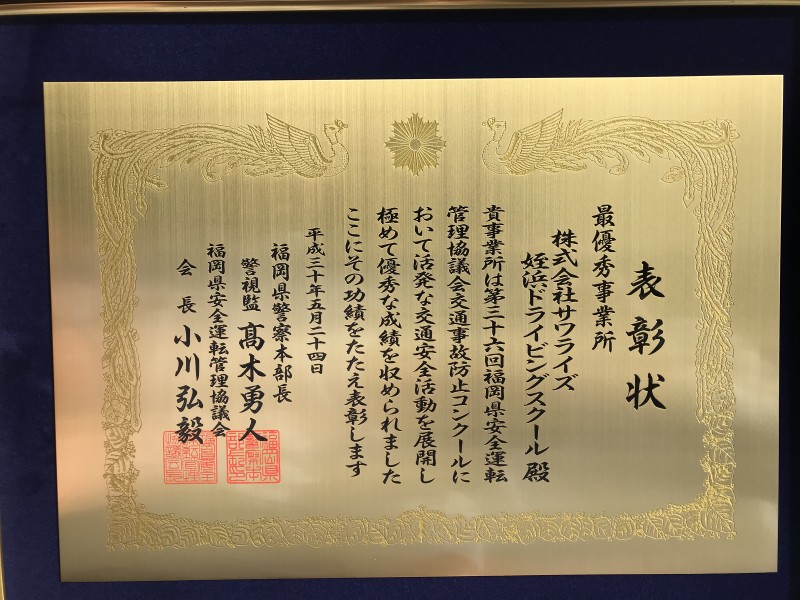 表彰状
最優秀事業所
株式会社サワライズ
姪浜ドライビングスクール 殿
貴事業所は第三十六回福岡県安全運転
管理協議会交通事故防止コンクールに
おいて活発な交通安全活動を展開し
極めて優秀な成績を収められました
ここにその功績をたたえ表彰します
平成三十年五月二十四日
福岡県警察本部長
警視監 髙木勇人
福岡県安全運転管理協議会
会長 小川弘毅